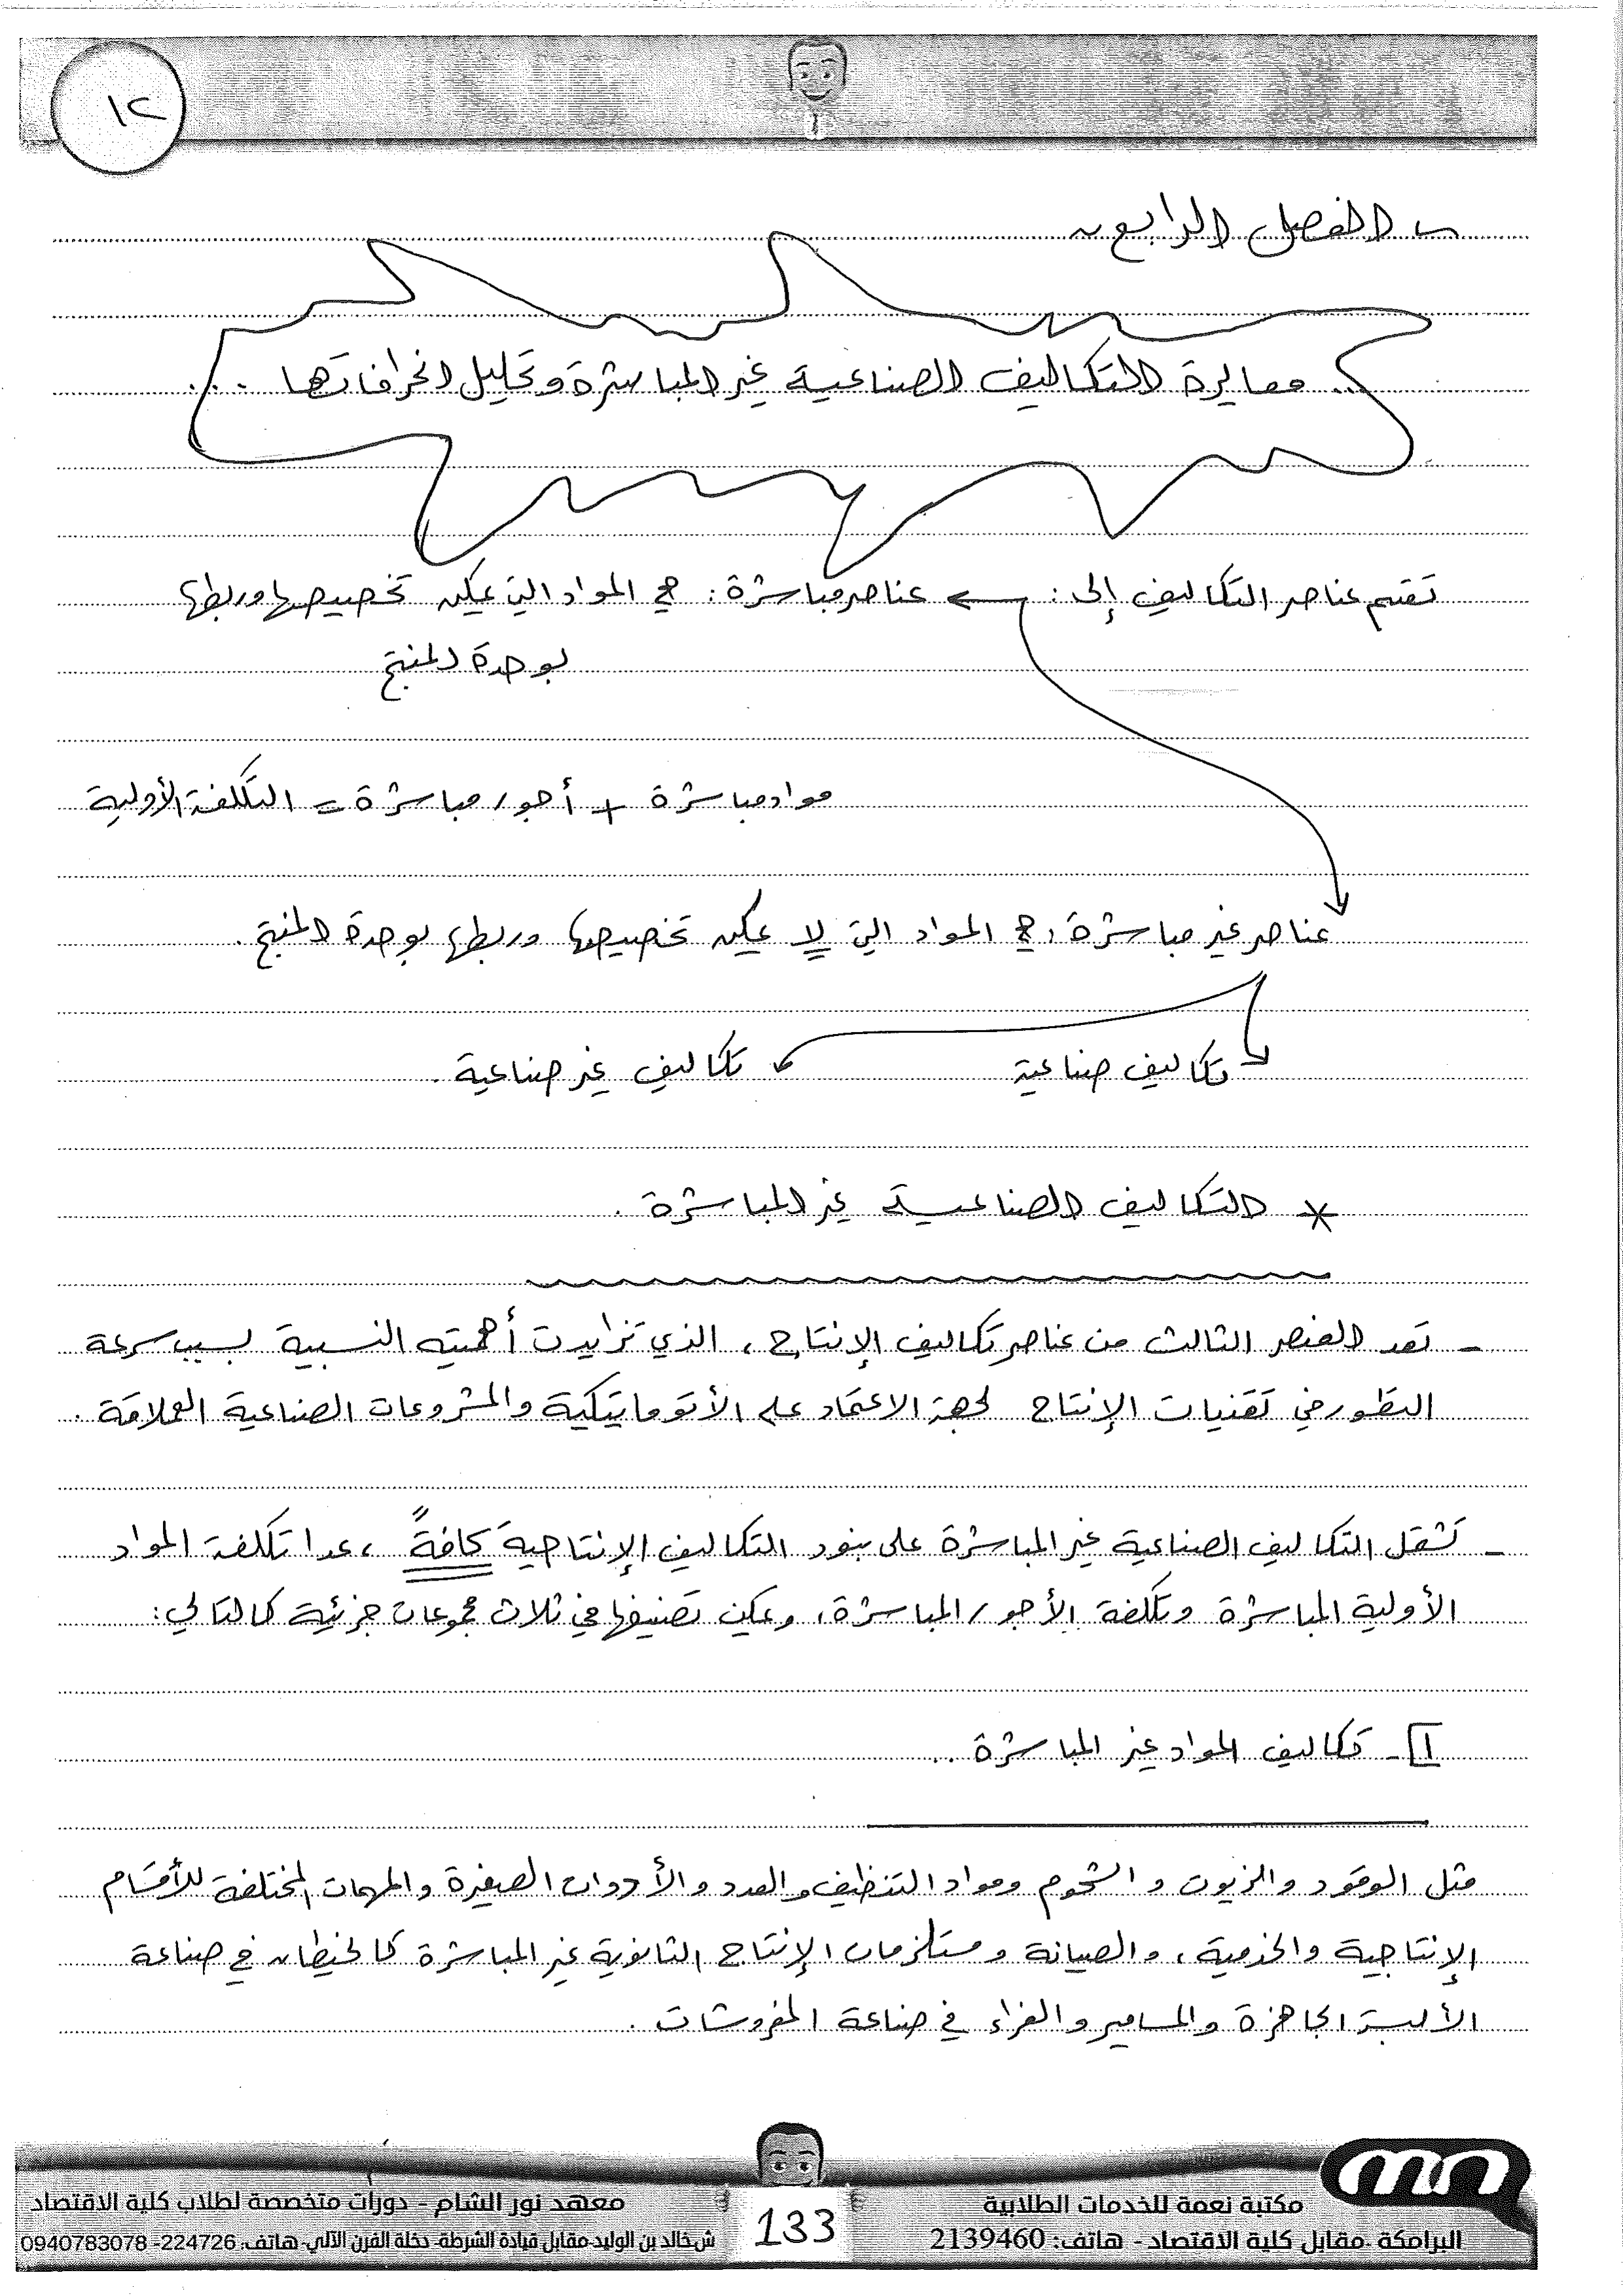 ١٢
الفصل الرابع
معايرة التكاليف الصناعية غير المباشرة وتحليل انحرافاتها ...
تقسم عناصر التكاليف إلى : ← عناصر مباشرة : هي المواد التي يمكن تخصيصها وربطها
بوحدة المنتج
مواد مباشرة + أجور مباشرة = التكلفة الأولية
عناصر غير مباشرة : هي المواد التي لا يمكن تخصيصها وربطها بوحدة المنتج .
تكاليف صناعية    تكاليف غير صناعية .
* التكاليف الصناعية غير المباشرة .
- تعد العنصر الثالث من عناصر تكاليف الإنتاج ، الذي تزايدت أهميته النسبية بسبب سرعة
التطور في تقنيات الإنتاج لجهة الاعتماد على الأتوماتيكية والمشروعات الصناعية العملاقة .
- تشمل التكاليف الصناعية غير المباشرة على بنود التكاليف الإنتاجية كافةً ، عدا تكلفة المواد
الأولية المباشرة وتكلفة الأجور المباشرة ، ويمكن تصنيفها في ثلاث مجموعات جزئية كالتالي :
1- تكاليف المواد غير المباشرة ..
مثل الوقود والزيوت والشحوم ومواد التنظيف والعدد والأدوات الصغيرة والمهمات المختلفة للأقسام
الإنتاجية والخدمية ، والصيانة ومستلزمات الإنتاج الثانوية غير المباشرة كالخيطان في صناعة
الألبسة الجاهزة والمسامير والغراء في صناعة المفروشات .
مكتبة نعمة للخدمات الطلابية
البرامكة -مقابل كلية الاقتصاد - هاتف: 2139460
133
معهد نور الشام - دورات متخصصة لطلاب كلية الاقتصاد
ش.خالد بن الوليد-مقابل قيادة الشرطة- دخلة الفرن الآلي- هاتف: 224726- 0940783078